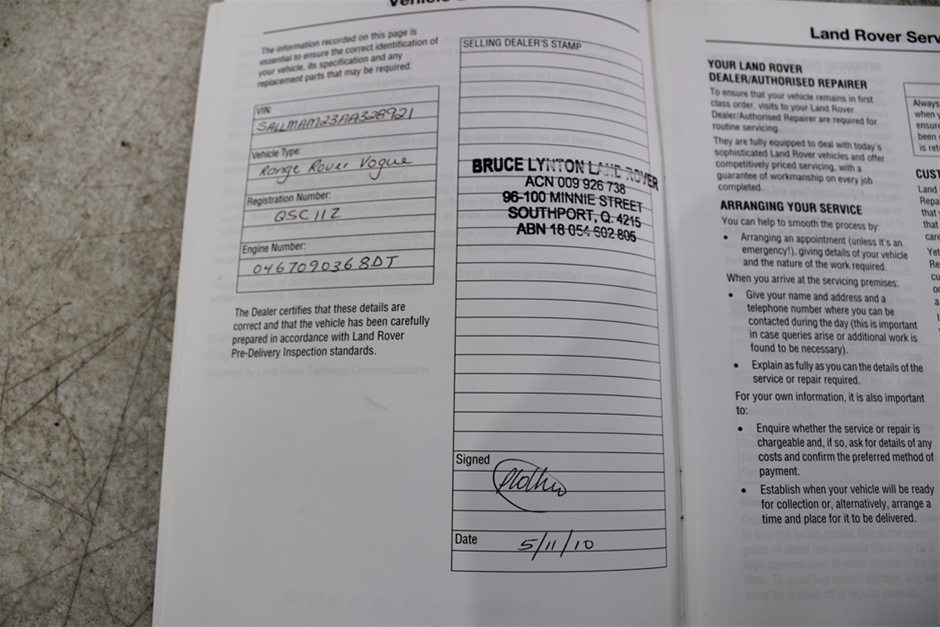 The information recorded on this page is
essential to ensure the correct identification of
your vehicle, its specification and any
replacement parts that may be required.
VIN:
SALLMAM23AA328921
Vehicle Type:
Range Rover Vogue
Registration Number:
QSC11Z
Engine Number:
0467090368DT
The Dealer certifies that these details are
correct and that the vehicle has been carefully
prepared in accordance with Land Rover
Pre-Delivery Inspection standards.
SELLING DEALER'S STAMP
BRUCE LYNTON LAND ROVER
ACN 009 926 738
96-100 MINNIE STREET
SOUTHPORT, Q. 4215
ABN 18 054 602 805
Signed
Date
5/11/10
Land Rover Serv
YOUR LAND ROVER
DEALER/AUTHORISED REPAIRER
To ensure that your vehicle remains in first
class order, visits to your Land Rover
Dealer/Authorised Repairer are required for
routine servicing.
They are fully equipped to deal with today's
sophisticated Land Rover vehicles and offer
competitively priced servicing, with a
guarantee of workmanship on every job
completed.
ARRANGING YOUR SERVICE
You can help to smooth the process by:
• Arranging an appointment (unless it's an
emergency!), giving details of your vehicle
and the nature of the work required.
When you arrive at the servicing premises:
• Give your name and address and a
telephone number where you can be
contacted during the day (this is important
in case queries arise or additional work is
found to be necessary).
• Explain as fully as you can the details of the
service or repair required.
For your own information, it is also important
to:
• Enquire whether the service or repair is
chargeable and, if so, ask for details of any
costs and confirm the preferred method of
payment.
• Establish when your vehicle will be ready
for collection or, alternatively, arrange a
time and place for it to be delivered.
Always
when y
ensure
been
is ret
CUST
Land
Repa
that
that
care
Yet
Re
cu